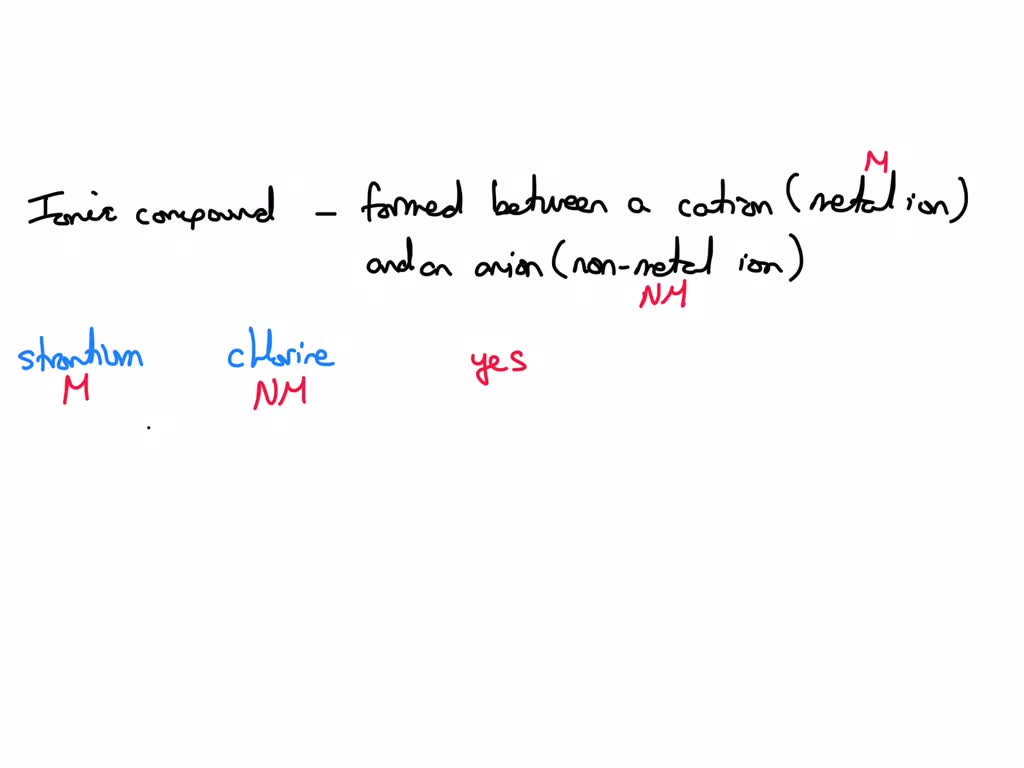 M
Ionic compound – formed between a cation (metal ion)
and an anion (non-metal ion)
NM
strontium chlorine yes
M NM